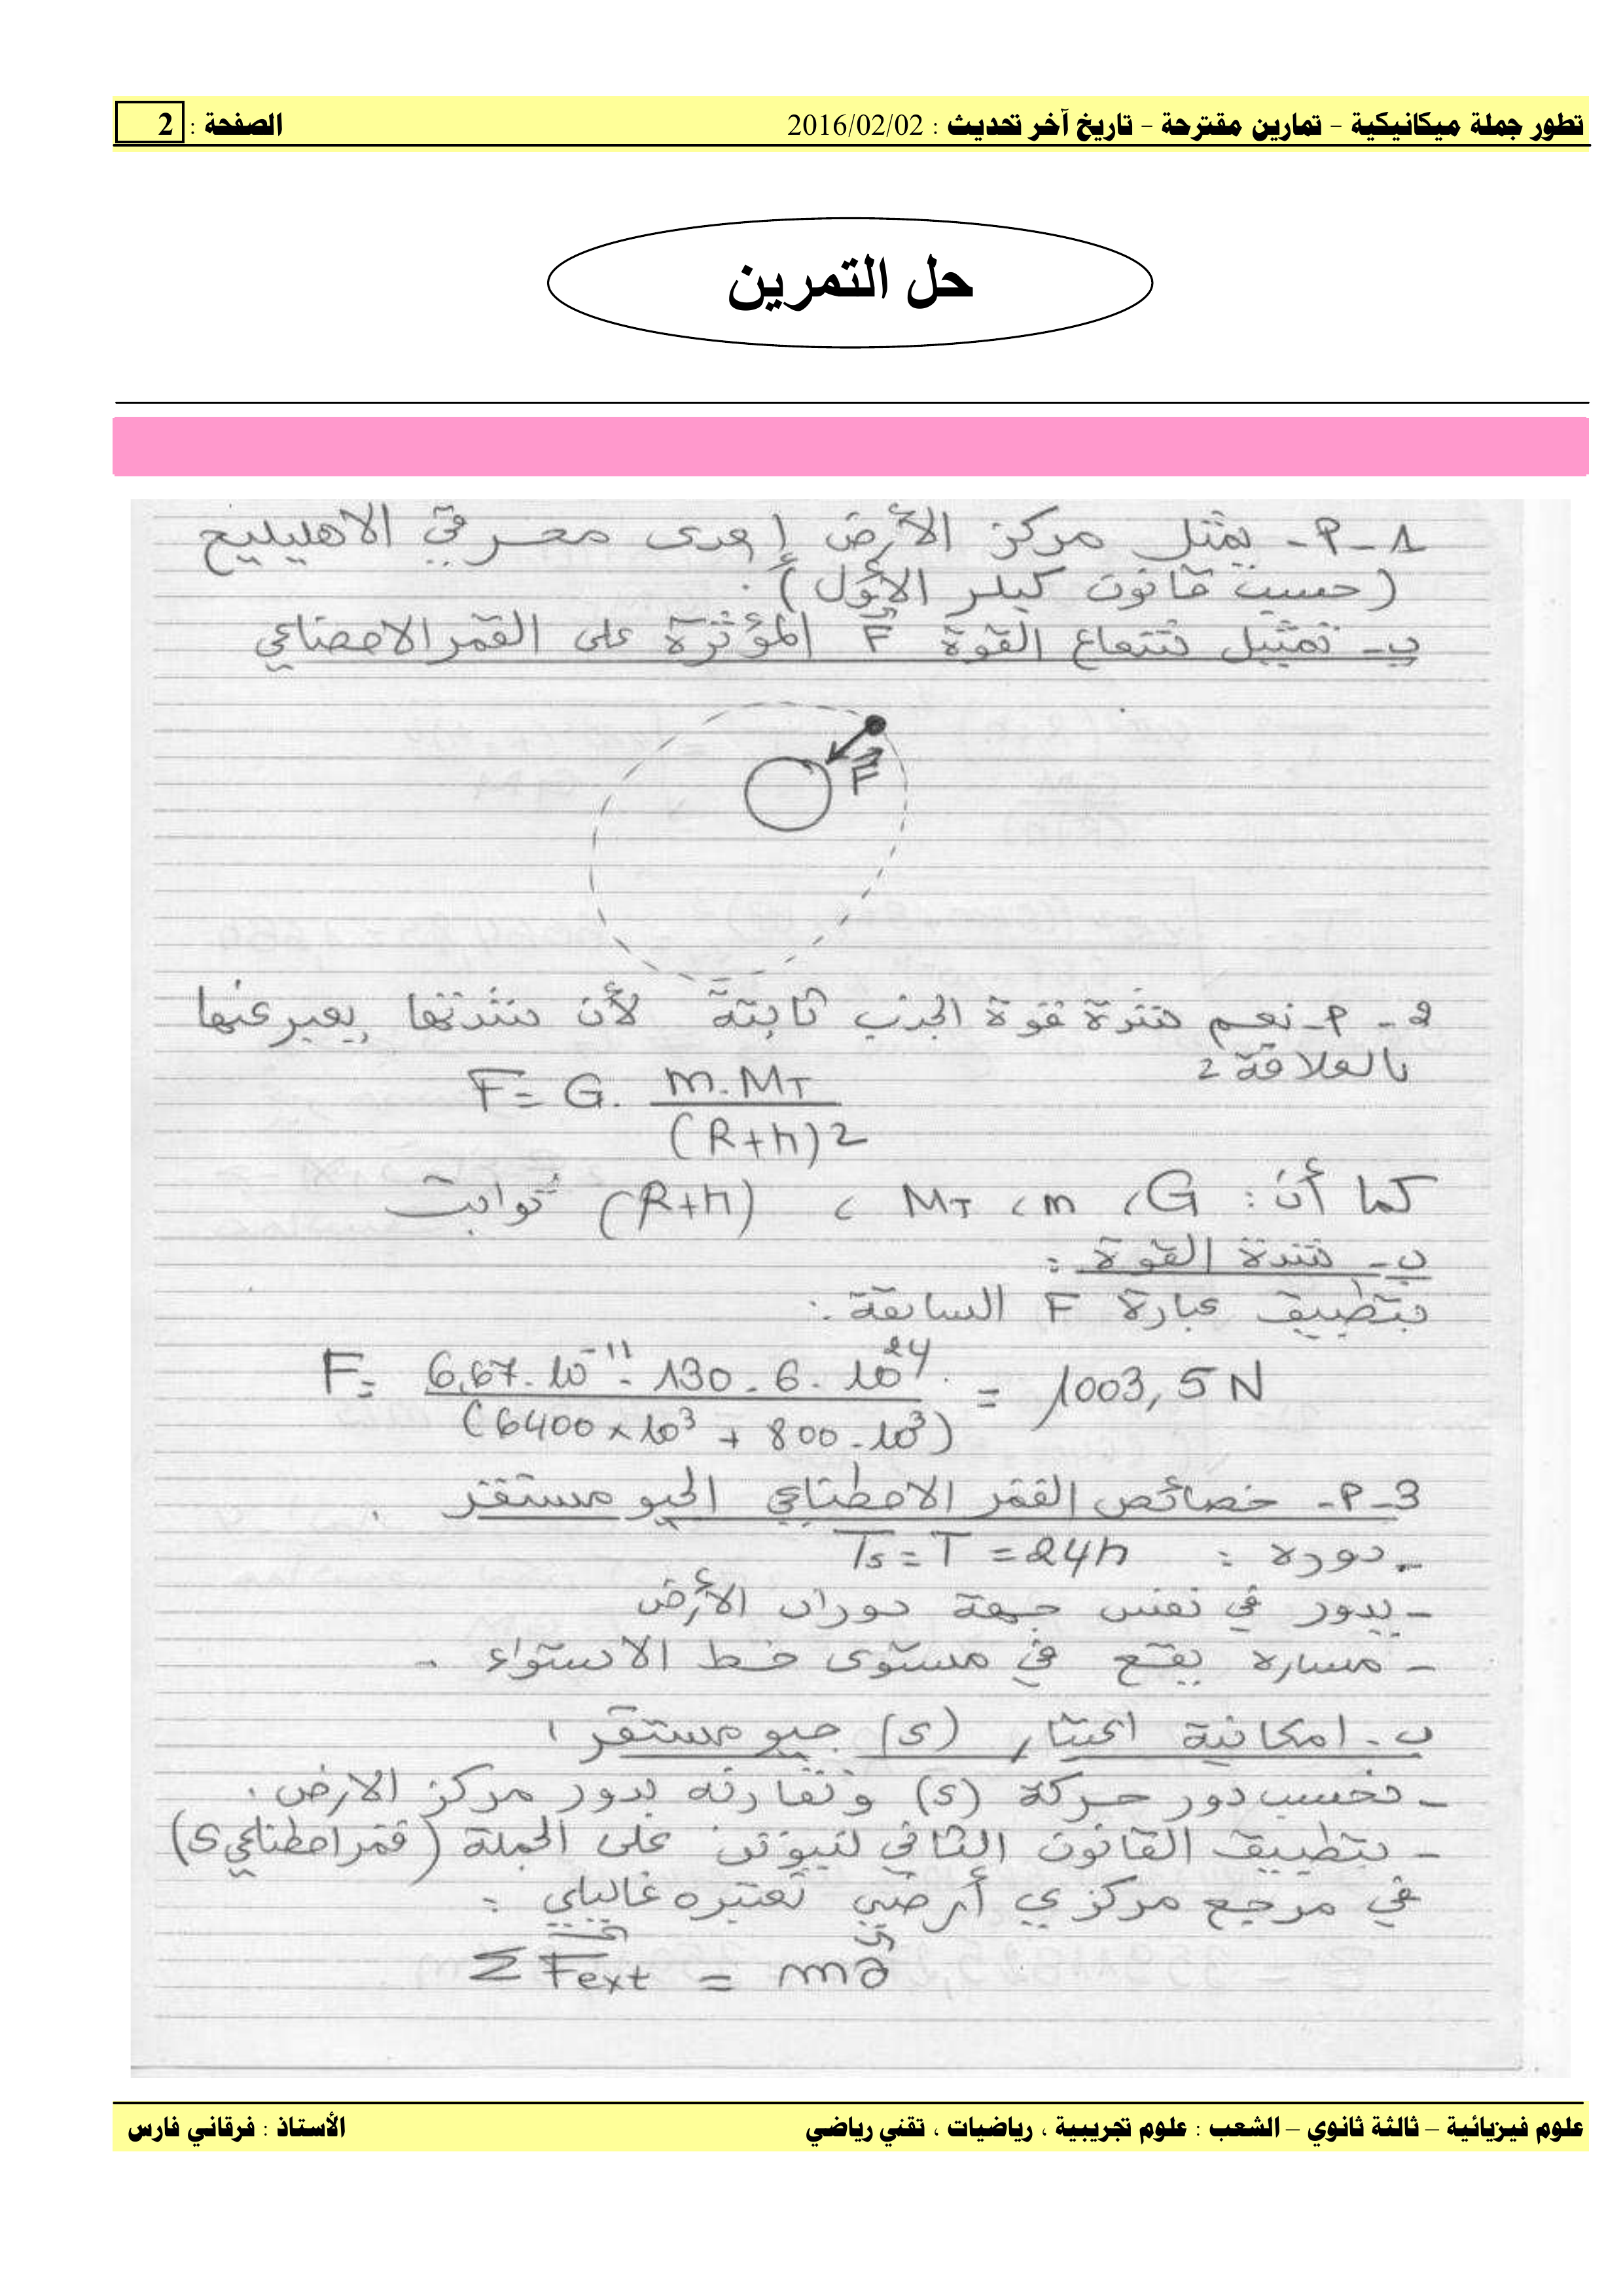 تطور جملة ميكانيكية – تمارين مقترحة – تاريخ آخر تحديث : 2016/02/02 الصفحة : 2
حل التمرين
1-P- يمثل مركز الأرض إحدى محرقي الاهليليج
(حسب قانون كبلر الأول).
ب- تمثيل شعاع القوة F المؤثرة على القمر الاصطناعي
F
2 - P- نعم شدة قوة الجذب ثابتة لأن شدتها يعبر عنها
بالعلاقة :
F = G. m.MT / (R+h)2
كما أن : G ، m ، MT ، (R+h) ثوابت
ب- شدة القوة :
بتطبيق عبارة F السابقة :
F = 6,67.10^-11 . 130 . 6 . 10^24 / (6400×10^3 + 800.10^3) = 1003,5 N
3-P- خصائص القمر الاصطناعي الجيو مستقر .
- دوره : Ts = T = 24h
- يدور في نفس جهة دوران الأرض
- مساره يقع في مستوى خط الاستواء .
ب- امكانية اعتبار (S) جيو مستقر :
- نحسب دور حركة (S) ونقارنه بدور مركز الارض .
- بتطبيق القانون الثاني لنيوتن على الجملة (قمر اصطناعي S)
في مرجع مركزي أرضي نعتبره غاليلي :
Σ Fext = ma
علوم فيزيائية – ثالثة ثانوي – الشعب : علوم تجريبية ، رياضيات ، تقني رياضي الأستاذ : فرقاني فارس